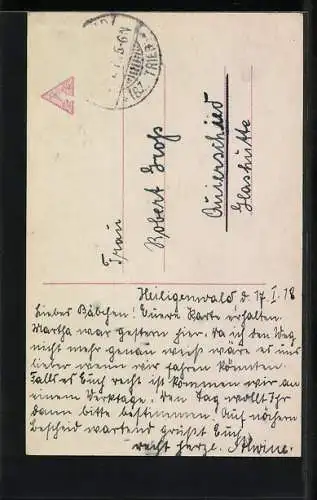 (BZ. TRIER)
Frau
Robert Groß
Quierschied
Glashütte
Heiligenwald d. 17.I.18
Liebes Bäbchen! Euere Karte erhalten.
Martha war gestern hier. Da ich den Weg
nicht mehr genau weiß wäre es uns
lieber wenn wir fahren könnten.
Falls es Euch recht ist kommen wir an
einem Werktage. Den Tag wollt Ihr
dann bitte bestimmen. Auf
Bescheid wartend grüßt Euch
recht herzl. Alwine.